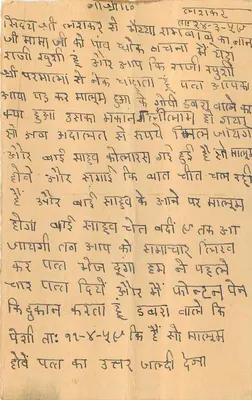 लशकर
ता: २४-३-५९
सिद्ध श्री लशकर से भैय्या राम
जी मामा जी को पांव धोक बंचना में यहां
राजी खुशी हूँ और आप कि राजी खुशी
श्री परमात्मा से नेक चाहता हूँ पत्र आपका
आया पढ़ कर मालूम हुआ के गोपी डबरा वाले का
क्या हुआ उसका मकान लीलाम हो गया
सो अब अदालत से रुपये मिल जायगा
और बाई साहब कोलारस गई हुई है सो मालूम
होवे और सगाई कि बात चीत चल रही
है और बाई साहब के आने पर मालूम
होगा बाई साहब चेत बदी ९ तक आ
जायगी तब आप को समाचार लिख
कर पत्र भेज दूंगा हम ने पहले
चार पत्र दिये और में फोन्टन पेन
कि दुकान करता हूं डबरा वाले कि
पेशी ता: ११-४-५९ कि है सो मालूम
होवे पत्र का उत्तर जल्दी देना